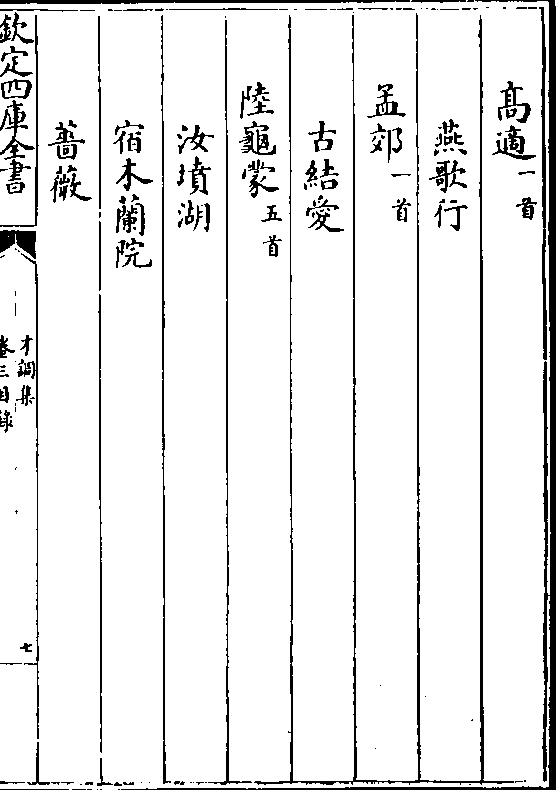 高適一首
燕歌行
孟郊一首
古結愛
陸龜蒙五首
汝墳湖
宿木蘭院
薔薇
欽定四庫全書
才調集
卷三目錄
七